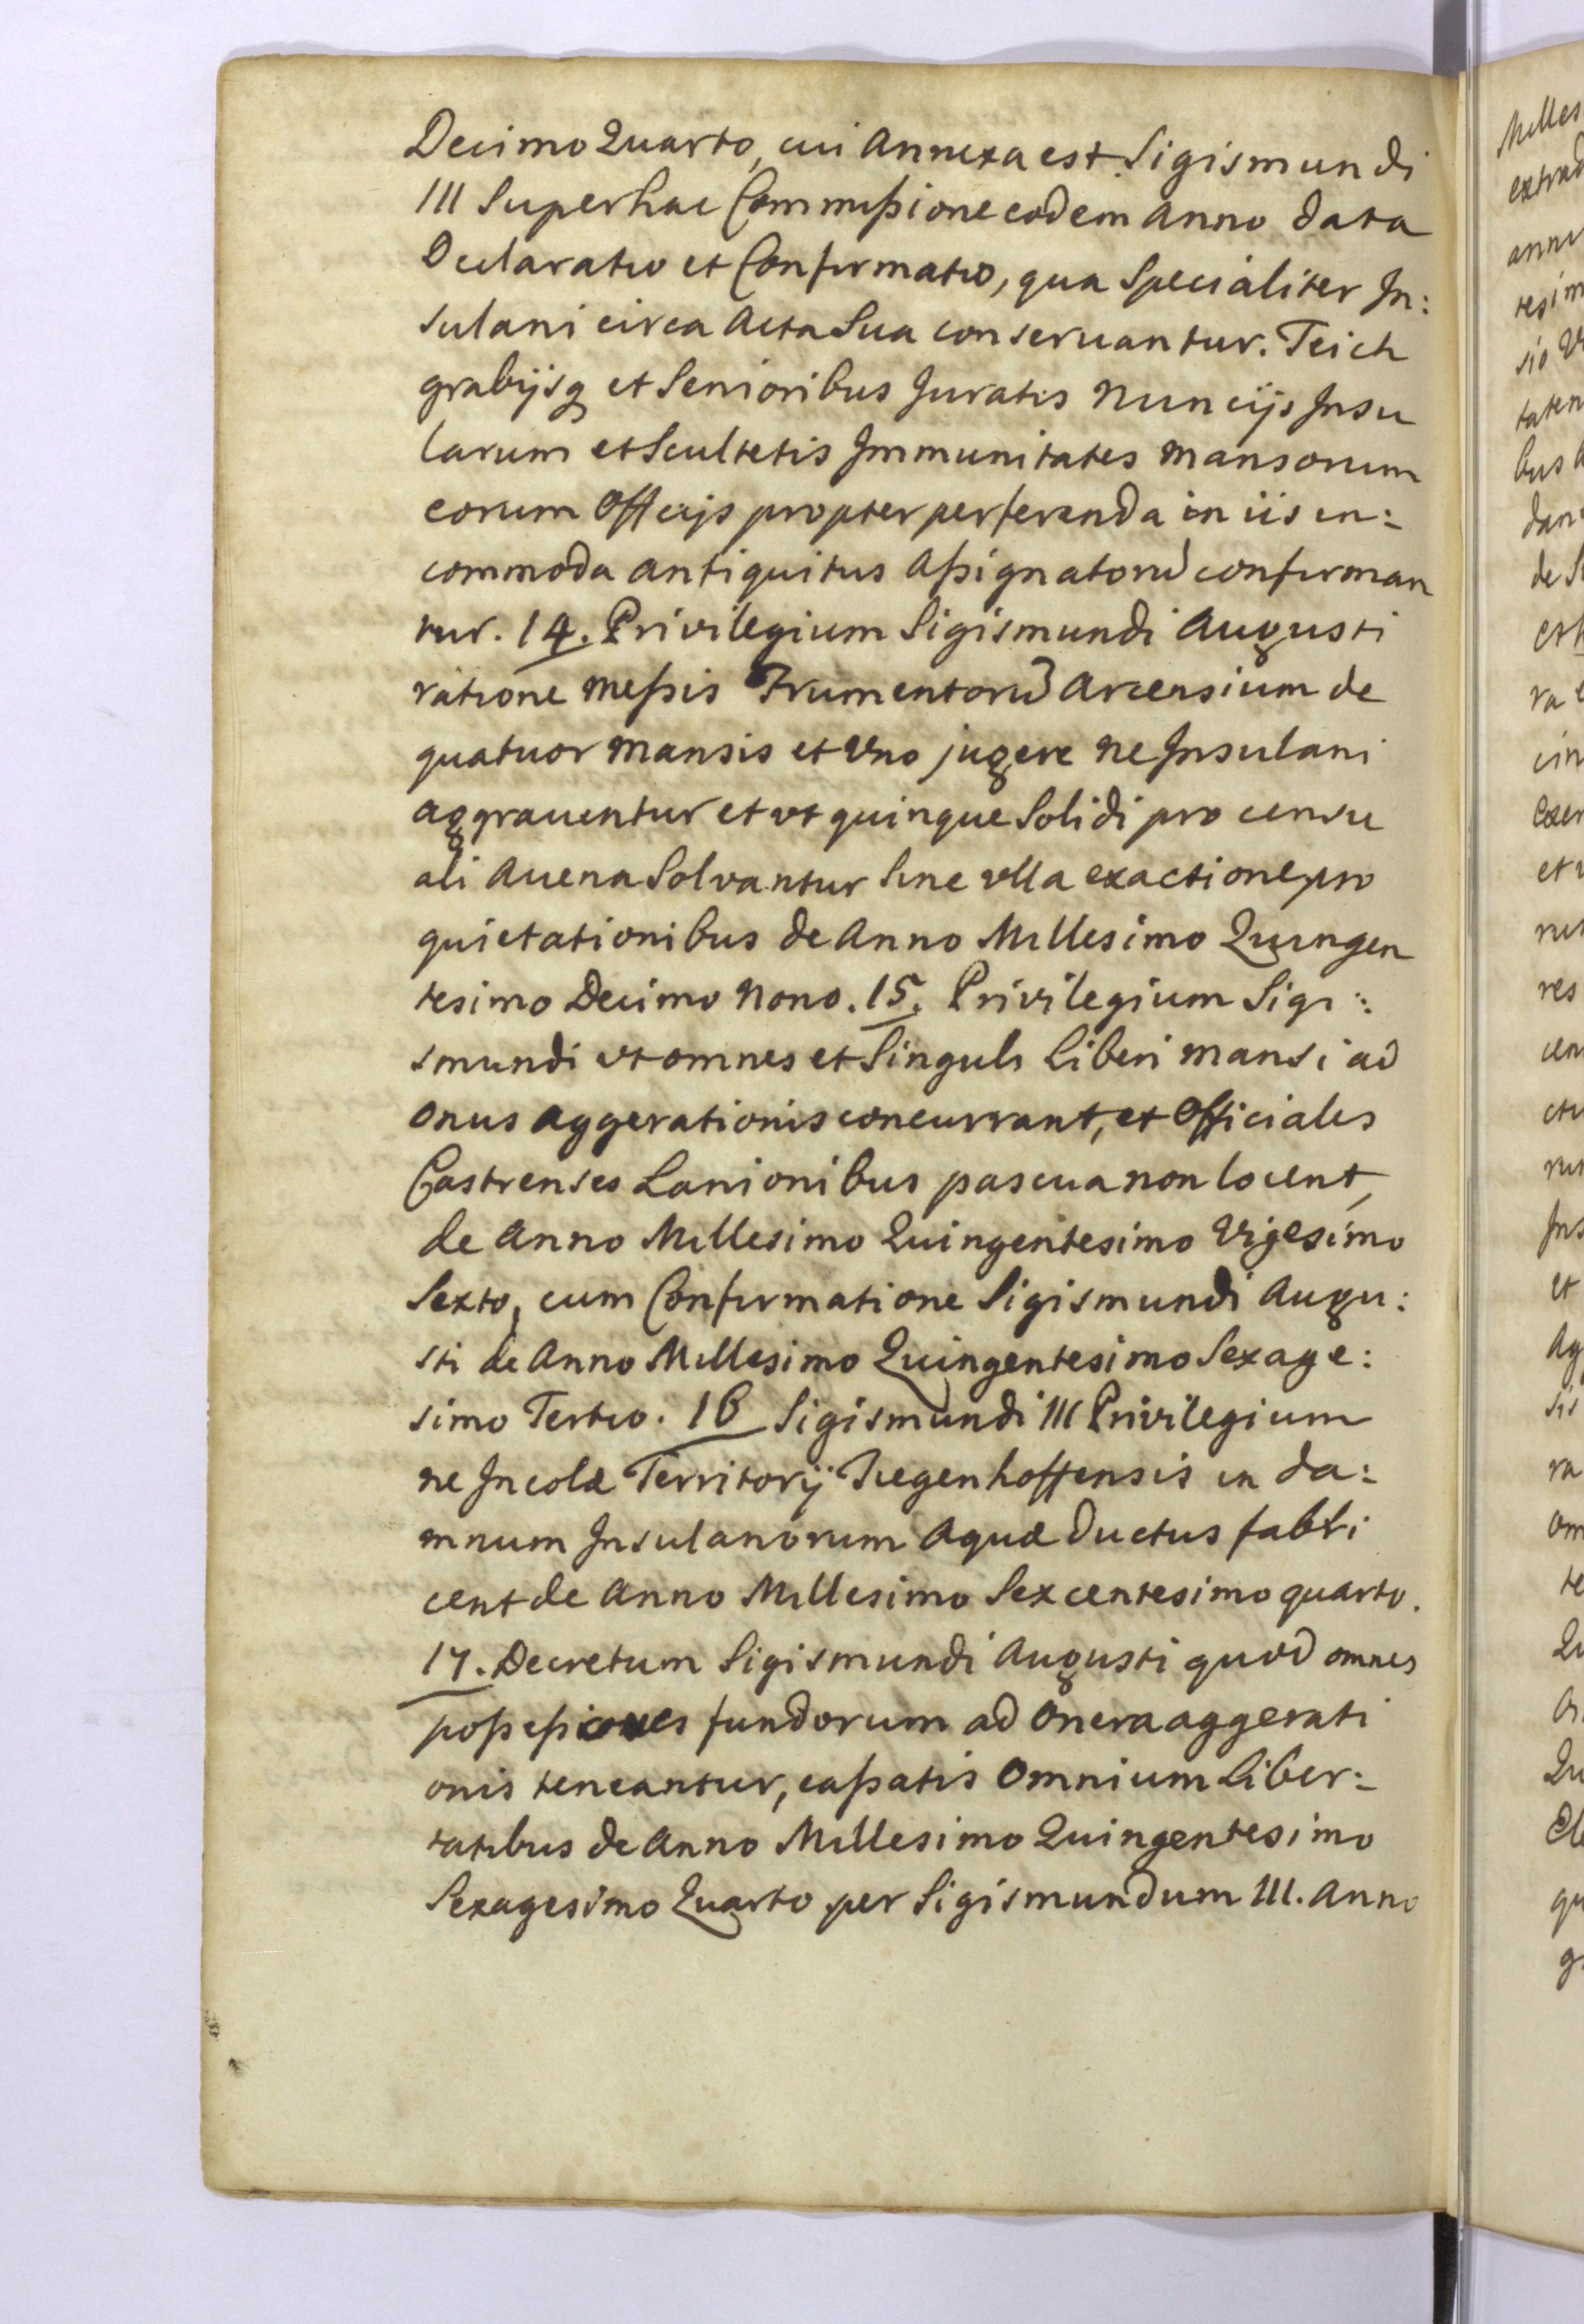 Decimo Quarto, cui Annexa est Sigismundi
III Super hac Commißione eodem Anno data
Declaratio et Confirmatio, qua Specialiter In:
sulani circa Acta Sua conseruantur. Teich
grabijsq et Senioribus Juratis Nuncijs Insu
larum et Scultetis Immunitates Mansorum
eorum Officijs propter perferenda in iis in:
commoda antiquitus Aßignatorũ confirman
tur. 14. Privilegium Sigismundi Augusti
ratione Meßis Frumentorũ Arcensium de
quatuor Mansis et Uno jugere ne Insulani
aggrauentur et vt quinque Solidi pro censu
ali Auena Solvantur Sine vlla exactione pro
quietationibus de Anno Millesimo Quingen
tesimo Decimo Nono. 15. Privilegium Sigi:
smundi vt omnes et Singuli Liberi Mansi ad
Onus Aggerationis concurrant, et Officiales
Castrenses Lanionibus pascua non locent,
de Anno Millesimo Quingentesimo Vigesimo
Sexto, cum Confirmatione Sigismundi Augu:
sti de Anno Millesimo Quingentesimo Sexage:
simo Tertio. 16 Sigismundi III Privilegium
ne Incolæ Territorij Tiegenhoffensis in da:
mnum Insulanorum Aquæ Ductus fabri
cent de Anno Millesimo Sexcentesimo quarto.
17. Decretum Sigismundi Augusti quod omnes
poßeßiones fundorum ad Onera aggerati
onis teneantur, caßatis Omnium Liber:
tatibus de Anno Millesimo Quingentesimo
Sexagesimo Quarto per Sigismundum III. Anno